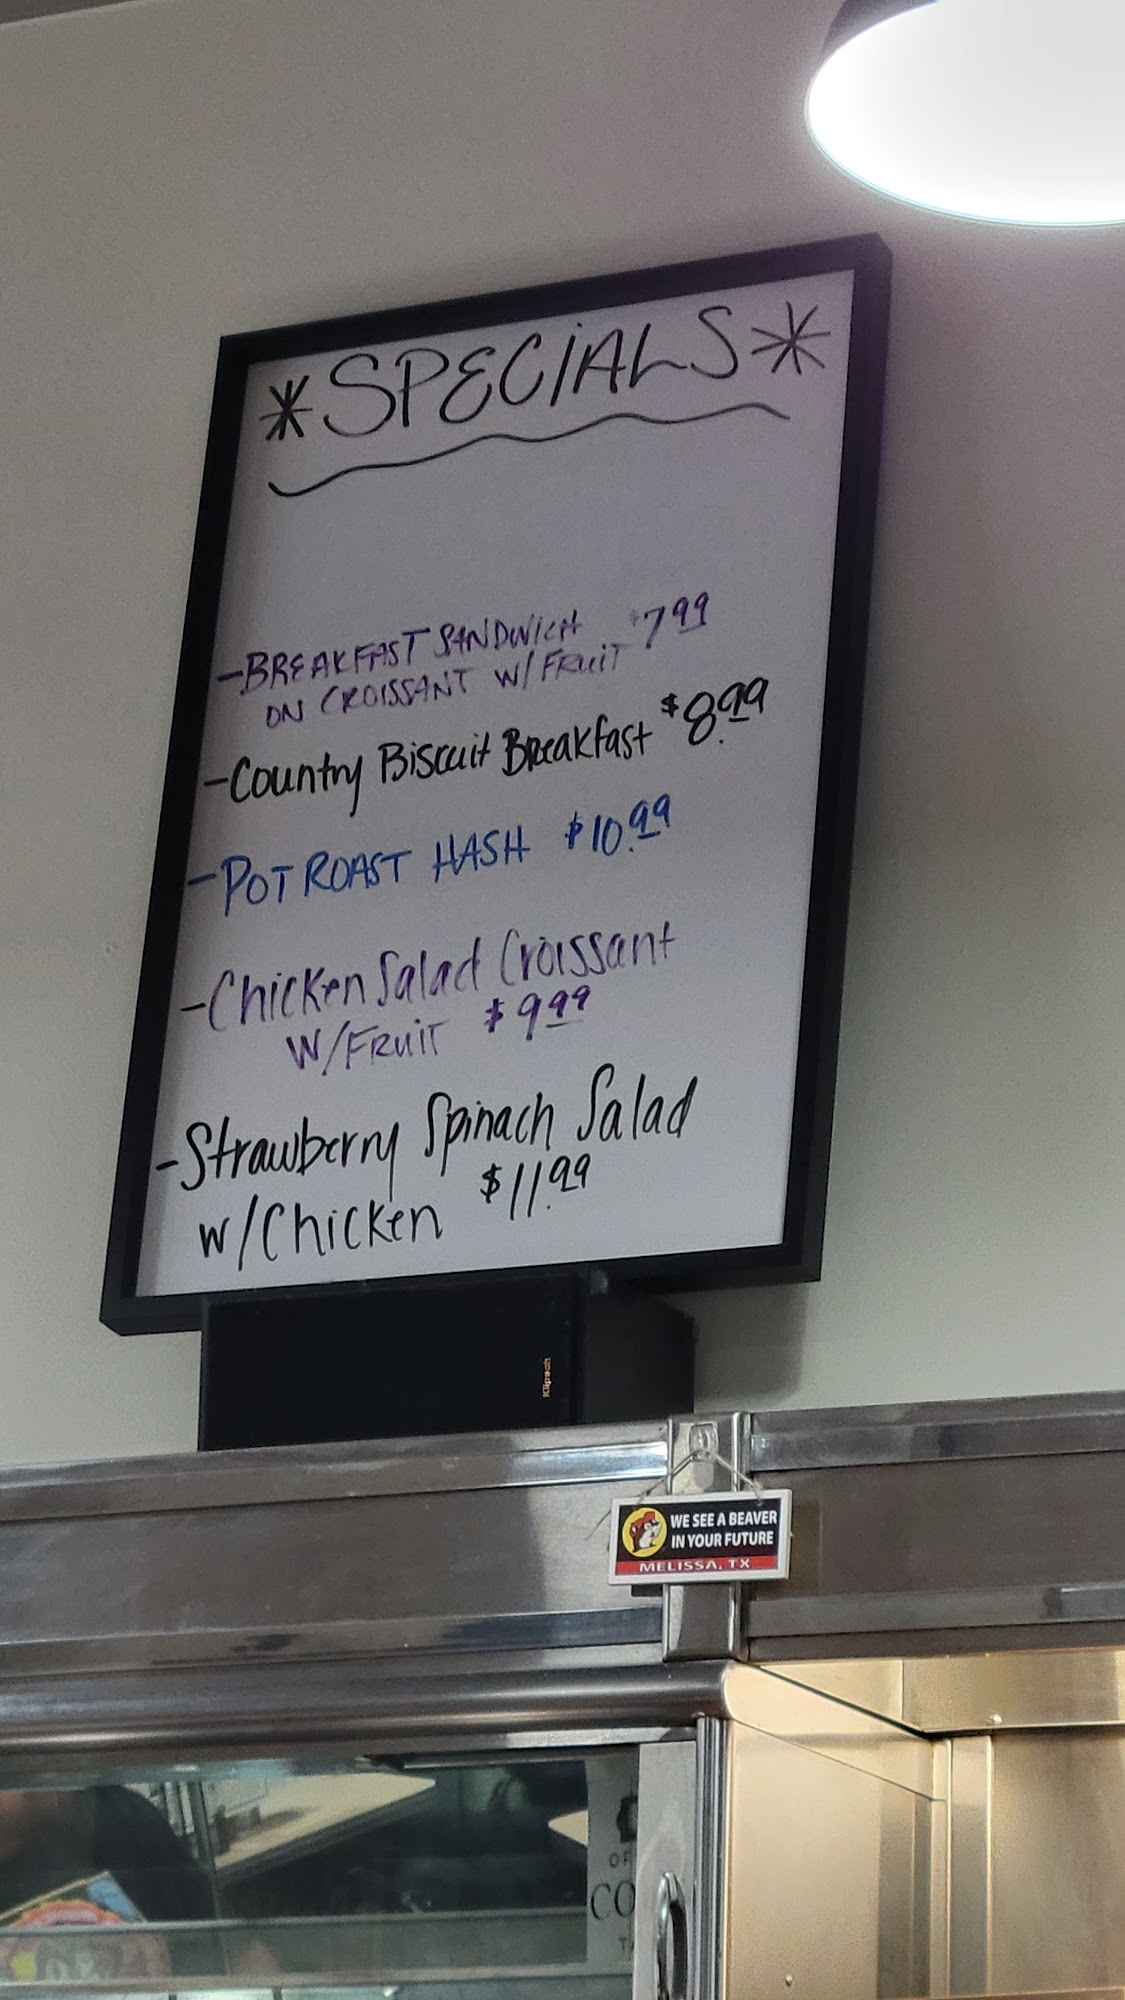 *SPECIALS*
-BREAKFAST SANDWICH $7.99
ON CROISSANT W/FRUIT
-Country Biscuit Breakfast $8.99
-POT ROAST HASH $10.99
-Chicken Salad Croissant
W/FRUIT $9.99
-Strawberry Spinach Salad
w/Chicken $11.99
Klipsch
WE SEE A BEAVER
IN YOUR FUTURE
MELISSA, TX